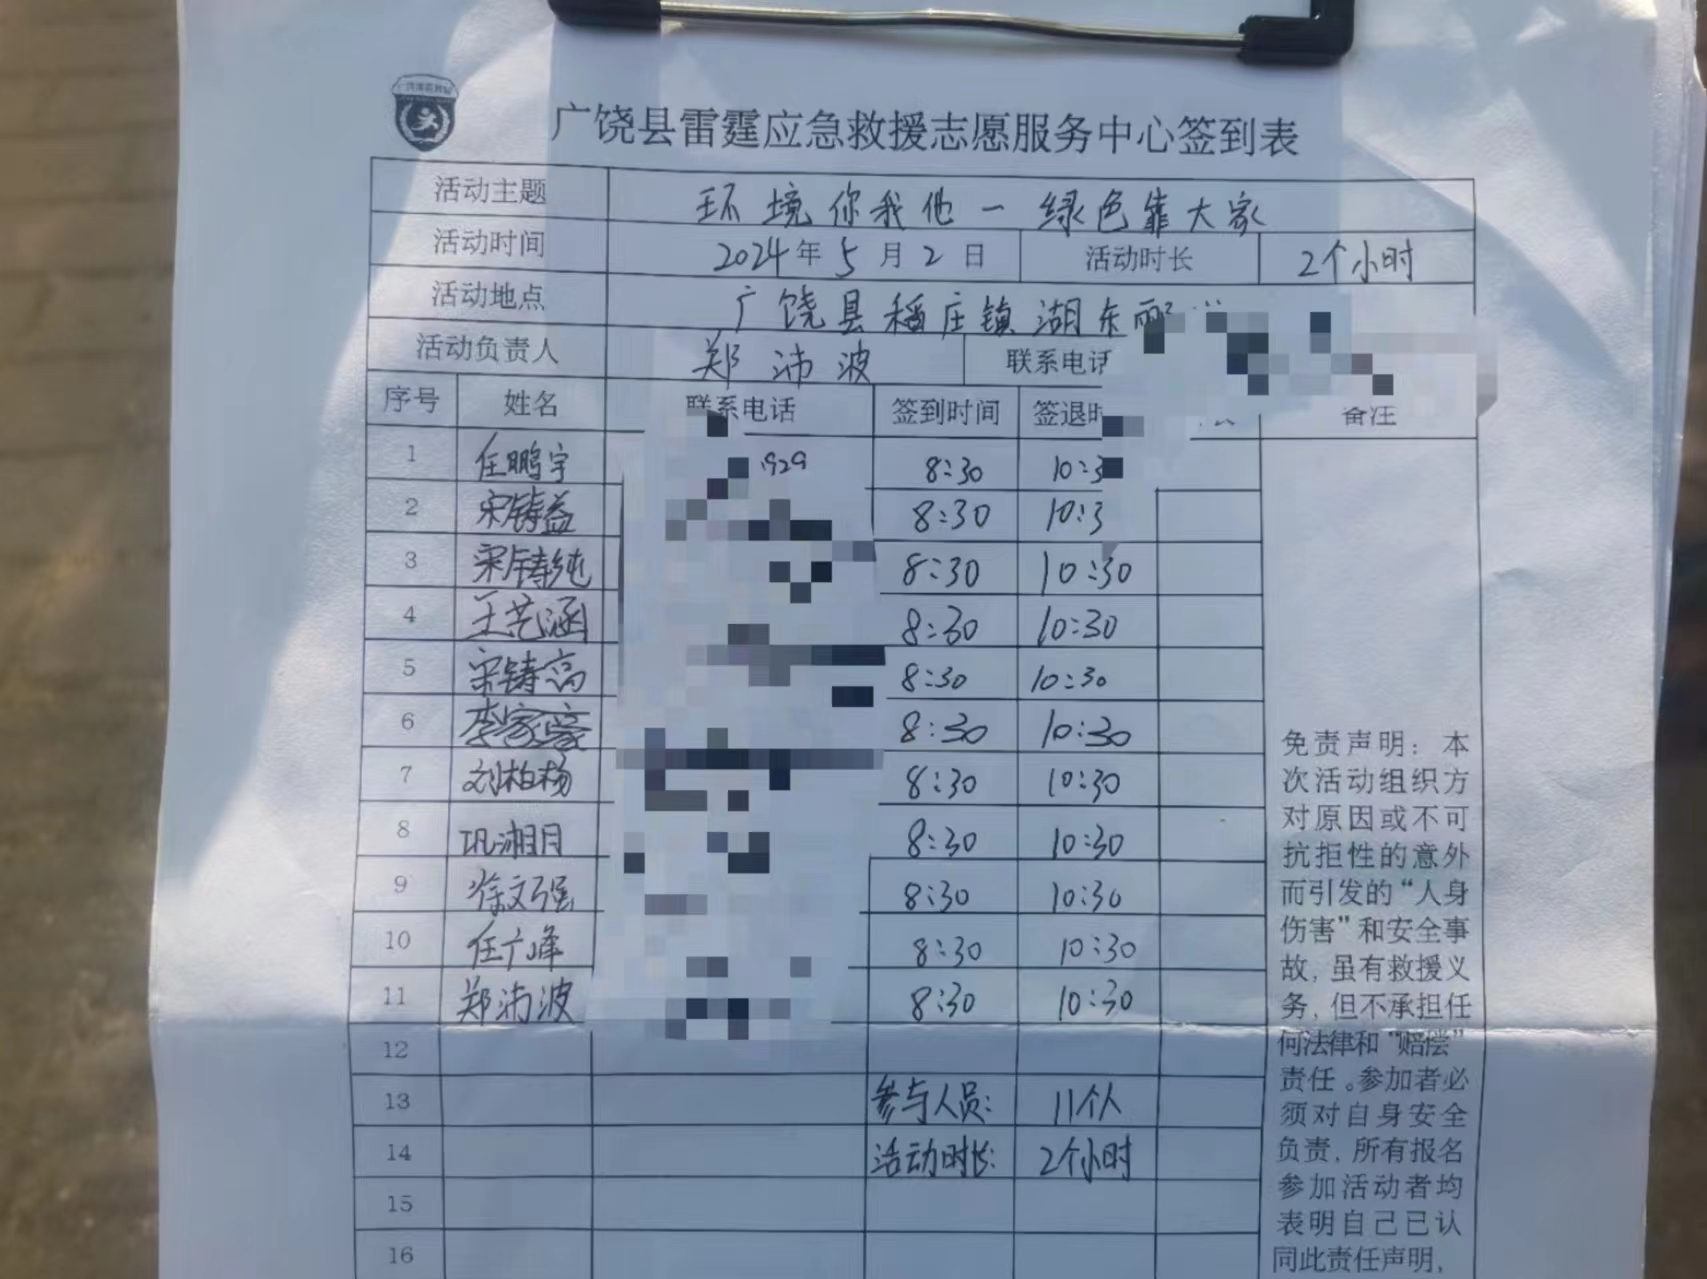 广饶县雷霆应急救援志愿服务中心签到表
活动主题 环境你我他一绿色靠大家
活动时间 2024年5月2日 活动时长 2个小时
活动地点 广饶县稻庄镇湖东丽
活动负责人 郑沛波 联系电话
序号 姓名 联系电话 签到时间 签退时 备注
1 任鹏宇 1929 8:30 10:3
2 宋铸益 8:30 10:3
3 宋铸纯 8:30 10:30
4 王艺涵 8:30 10:30
5 宋铸高 8:30 10:30
6 李家豪 8:30 10:30
7 刘柏杨 8:30 10:30
8 巩湘月 8:30 10:30
9 徐文强 8:30 10:30
10 任广峰 8:30 10:30
11 郑沛波 8:30 10:30
12
13 参与人员: 11个人
14 活动时长: 2个小时
15
16
免责声明：本
次活动组织方
对原因或不可
抗拒性的意外
而引发的“人身
伤害”和安全事
故，虽有救援义
务，但不承担任
何法律和“赔偿”
责任。参加者必
须对自身安全
负责，所有报名
参加活动者均
表明自己已认
同此责任声明，